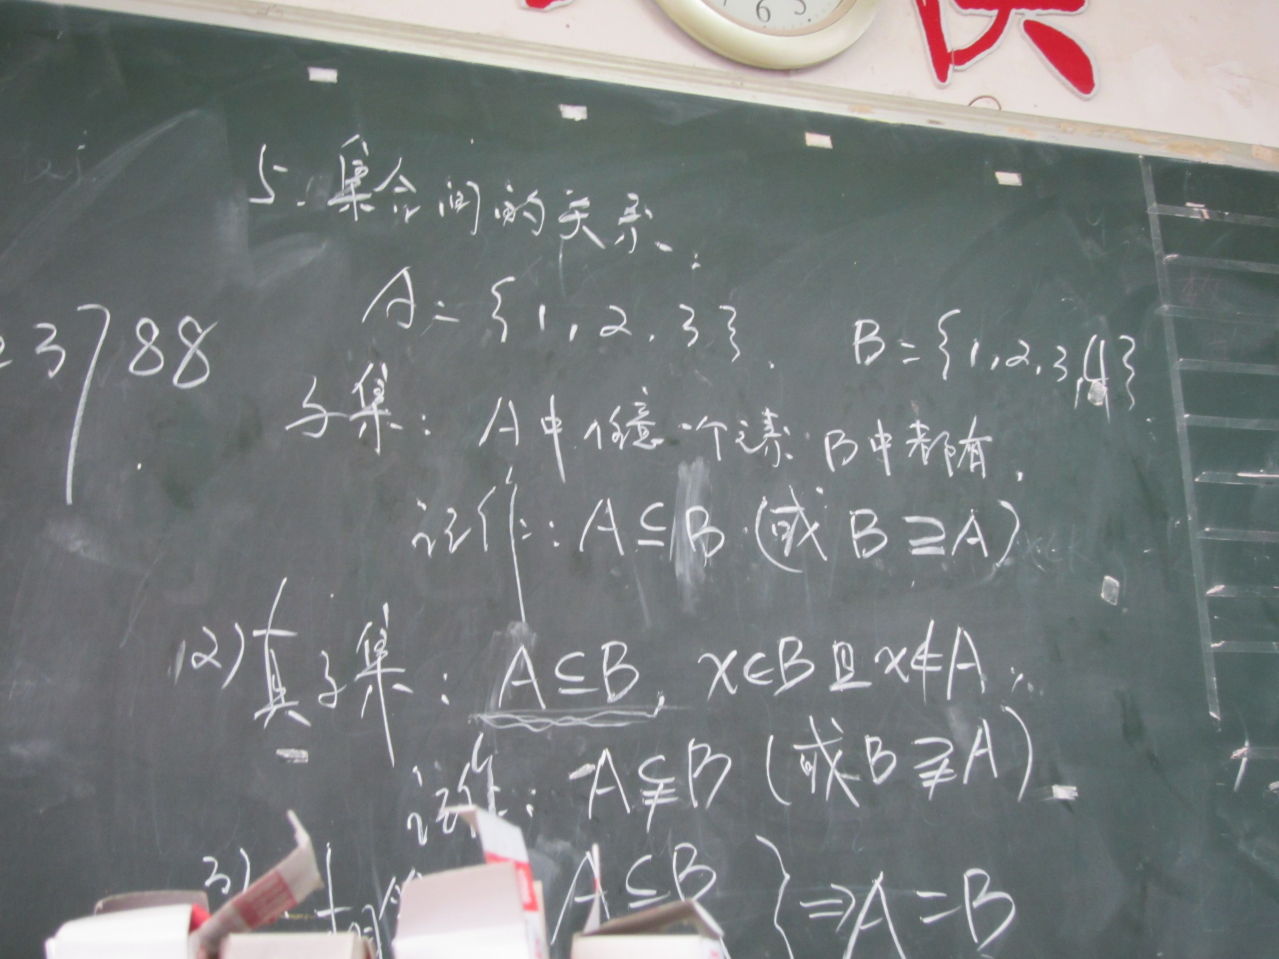 5.集合间的关系.
A={1,2,3}. B={1,2,3,4}
3788
子集: A中任意一个元素B中都有.
记作: A⊆B (或 B⊇A)
(2)真子集: A⊆B, x∈B且x∉A
记作: A⫋B (或B⫌A)
3)
A⊆B }⇒A=B
6 5